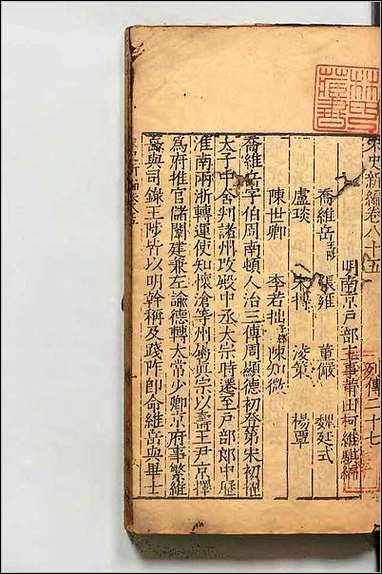 宋史新編卷八十五
列傳二十七
明南京戶部主事莆田柯維騏編
喬維岳 張雍 董儼 魏廷式
盧琰 宋搏 淩策 楊覃
陳世卿 李若拙 陳知微
喬維岳字伯周南頓人治三傳周顯德初登第宋初擢
太子中舍判諸州攻殿中丞太宗時遷至戶部郎中歷
淮南兩浙轉運使知懷滄等州眞宗以壽王尹京擇
為府推官儲闈建兼左諭德轉太常少卿京府事繁維
岳與司錄王陟皆以明幹稱及踐阼即命維岳與畢士